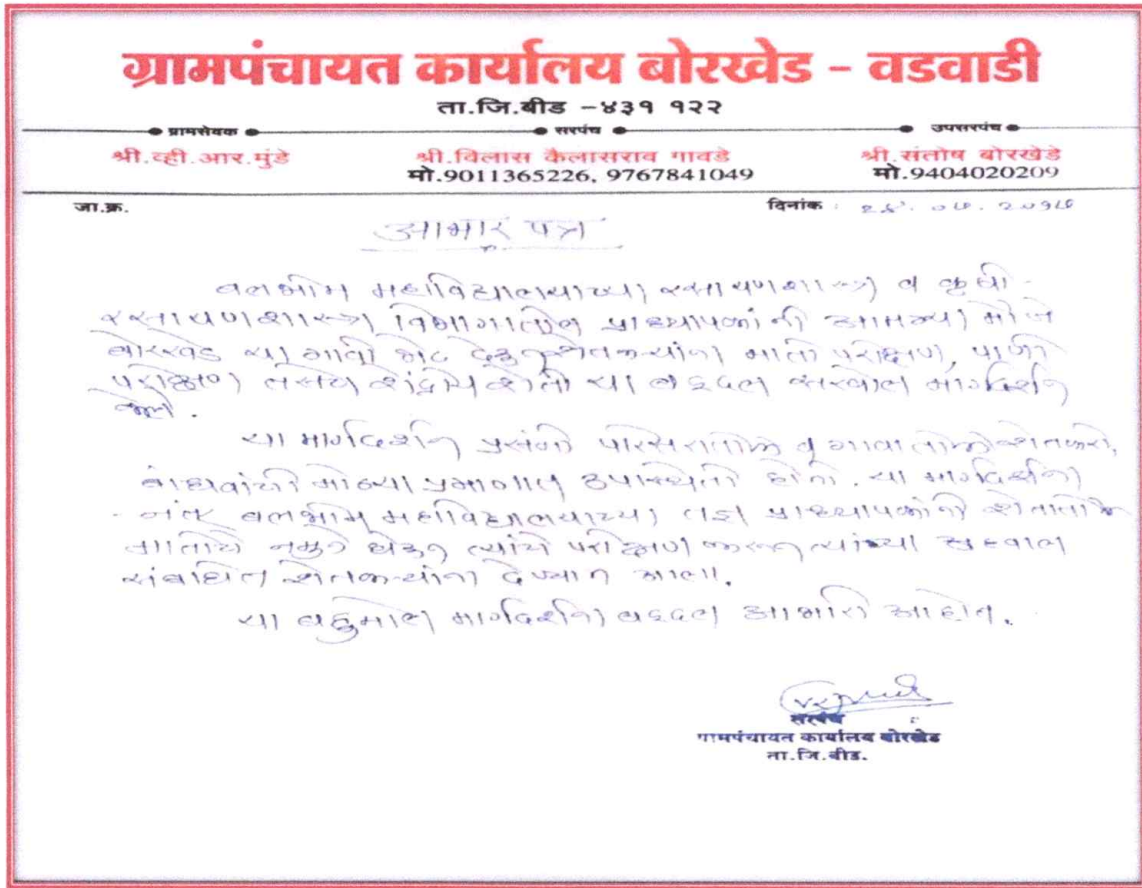 ग्रामपंचायत कार्यालय बोरखेड - वडवाडी
ता.जि.बीड -४३१ १२२
ग्रामसेवक सरपंच उपसरपंच
श्री.व्ही.आर.मुंडे श्री.विलास कैलासराव गावडे श्री.संतोष बोरखेडे
मो.9011365226, 9767841049 मो.9404020209
जा.क्र. दिनांक :
आभार पत्र
बलभीम महाविद्यालयाच्या रसायणशास्त्र व कृषी
रसायणशास्त्र विभागातील प्राध्यापकांनी आमच्या मौजे
बोरखेड या गावी भेट देऊन शेतकऱ्यांना माती परीक्षण, पाणी
परीक्षण तसेच सेंद्रीय शेती या बद्दल सखोल मार्गदर्शन
केले.
या मार्गदर्शन प्रसंगी परिसरातील व गावातील शेतकरी
बांधवांची मोठ्या प्रमाणात उपस्थिती होती. या मार्गदर्शना
नंतर बलभीम महाविद्यालयाच्या तज्ञ प्राध्यापकांनी शेतातील
मातीचे नमुने घेऊन त्यांचे परीक्षण करून त्यांच्या अहवाल
संबंधित शेतकऱ्यांना देण्यात आला.
या बहुमोल मार्गदर्शना बद्दल आभारी आहोत.
सरपंच
ग्रामपंचायत कार्यालय बोरखेड
ता.जि.बीड.